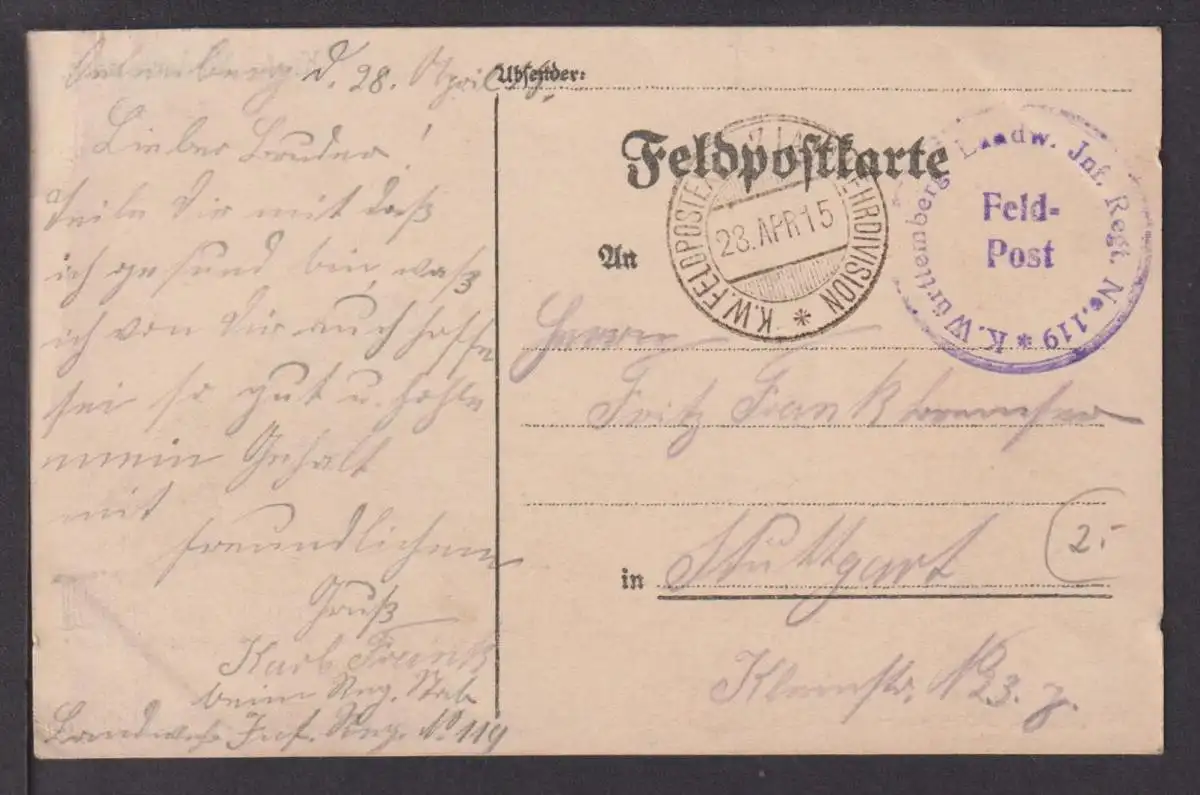 d. 28. April
Lieber Bruder!
Teile Dir mit daß
ich gesund bin, waß
ich von Dir auch hoffe
sei so gut u. hohle
mein Gehalt
mit
freundlichem
Gruß
Karl Frank
beim Reg. Stab
Landweh. Inf. Reg. No 119
Absender:
Feldpostkarte
An
K.W. FELDPOSTEX LANDWEHRDIVISION *
28. APR 15
K. Württemberg. Landw. Inf. Regt. No. 119 *
Feld-
Post
Herrn
Fritz Frank
in Stuttgart
No 23.
2.-